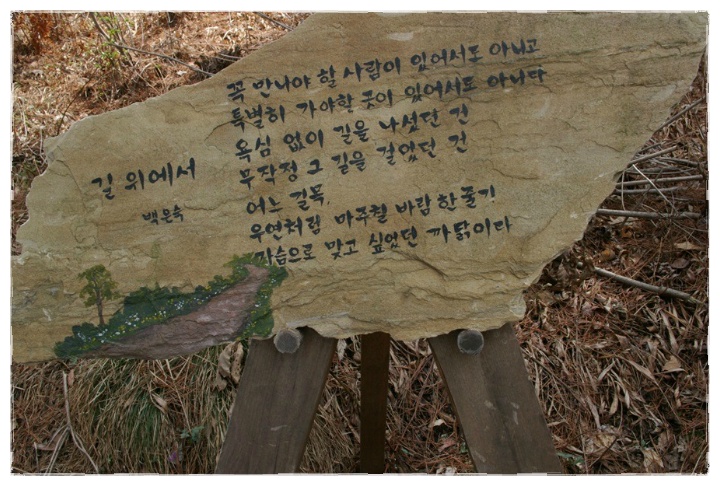 길 위에서
백은숙
꼭 만나야 할 사람이 있어서도 아니고
특별히 가야할 곳이 있어서도 아니다
욕심 없이 길을 나섰던 건
무작정 그 길을 걸었던 건
어느 길목,
우연처럼 마주칠 바람 한 줄기
가슴으로 맞고 싶었던 까닭이다